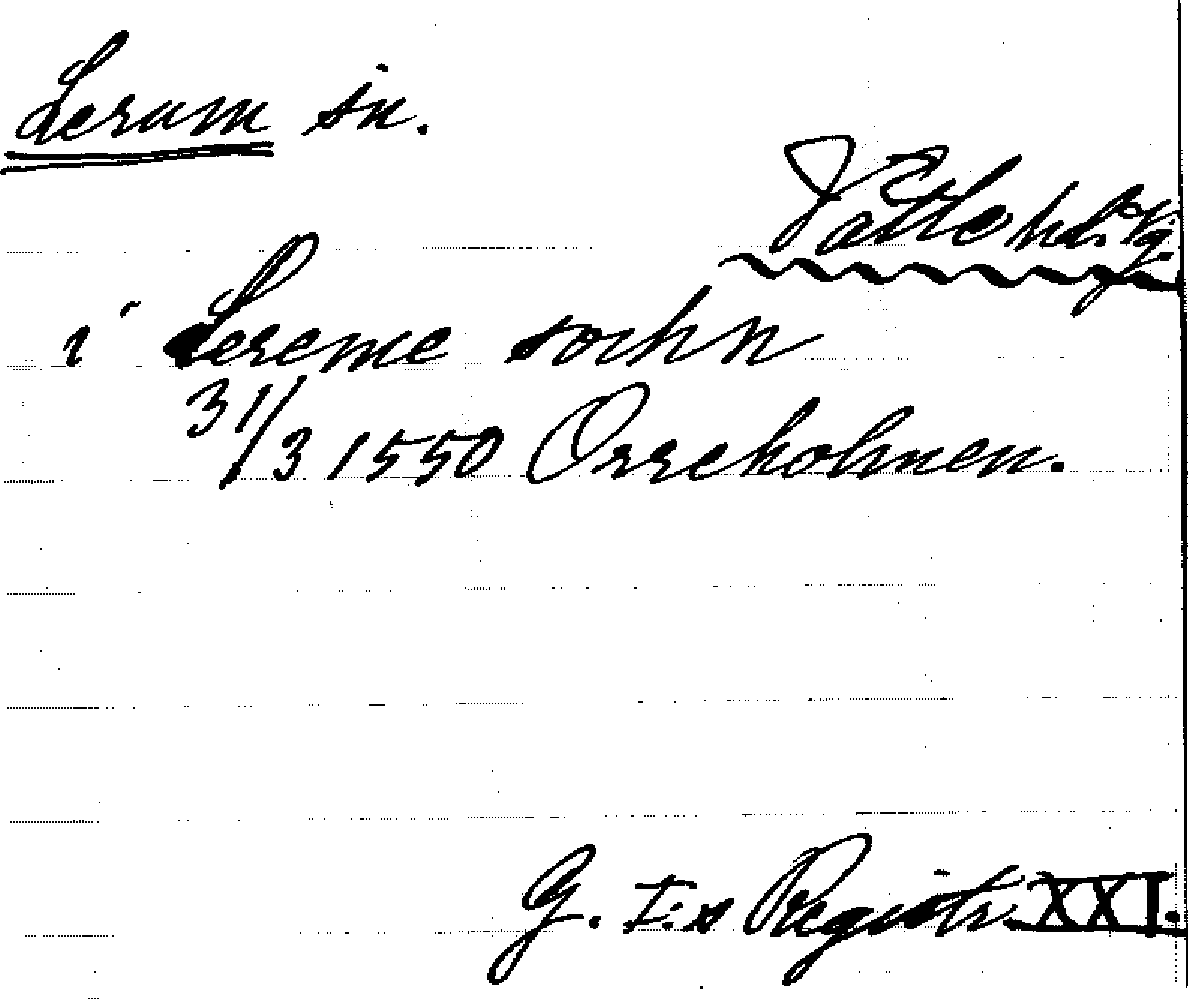 Lerum sn.
Vättle hd. Vg.
i Lereme sochn
31/3 1550 Orreholmen.
G. I:s Registr. XXI.